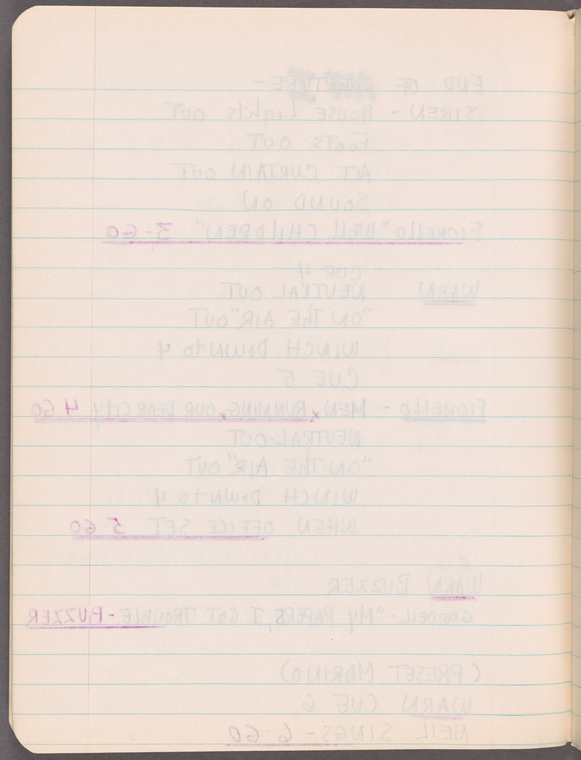 END OF OVERTURE -
SIREN - HOUSE Lights OUT
FOOTS OUT
ACT CURTAIN OUT
SOUND ON
FIORELLO "WELL CHILDREN" 3-GO
CUE 4
WARN NEUTRAL OUT
"ON THE AIR" OUT
WINCH DOWN to 4
CUE 5
FIORELLO - MEN, RUNNING, OUR DEAR CITY 4 GO
NEUTRAL-OUT
"ON THE AIR" OUT
WINCH DOWN to 4
WHEN OFFICE SET 5 GO
WARN BUZZER
"MY PAPERS, I GOT TROUBLE - BUZZER
(PRESET MARINO)
WARN CUE 6
NEIL SINGS - 6-GO